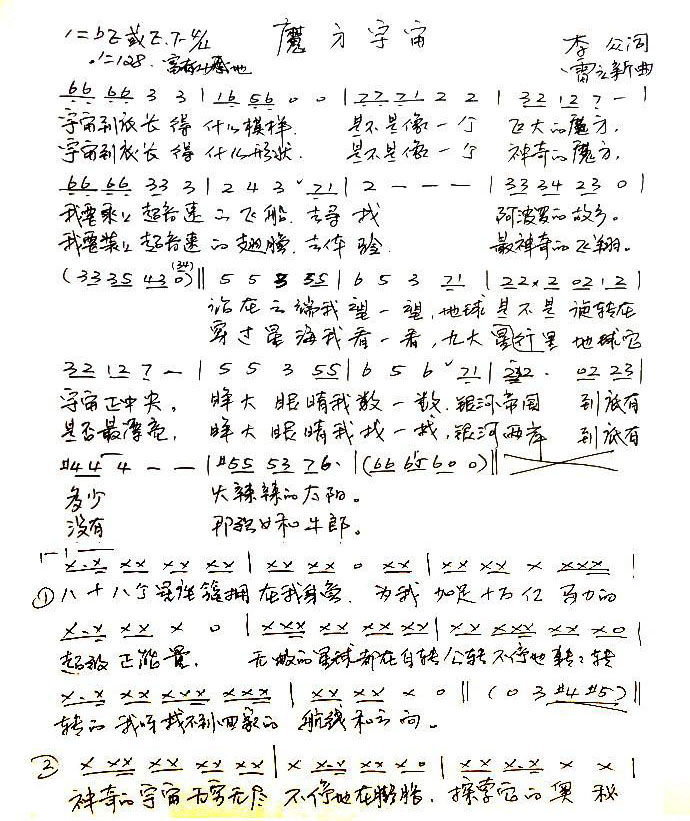 1=bE或E.F 4/4 魔方宇宙 李众词
♩=128. 雷立新曲
66 66 3 3 | 16 56 0 0 | 77 71 2 2 | 32 12 7 - |
宇宙到底长得什么模样. 是不是像一个 飞大的魔方.
宇宙到底长得什么形状. 是不是像一个 神奇的魔方.
66 66 33 3 | 2 4 3 ˇ 71 | 2 - - - | 33 34 23 0 |
我要乘上超音速的飞船. 去寻找 阿波罗的故乡。
我要装上超音速的翅膀. 去体验 最神奇的飞翔。
(33 35 43 0) (34) || 5 5 3 35 | 6 5 3 71 | 22·2 02 12 |
站在云端我望一望, 地球是不是旋转在
穿过星海我看一看, 九大行星 地球它
32 12 7 - | 5 5 3 55 | 6 5 6 ˇ 71 | 02 23 |
宇宙正中央。 睁大眼睛我数一数. 银河帝国 到底有
是否最漂亮. 睁大眼睛我找一找, 银河两岸 到底有
#44 4 - - | #55 53 76· | (66 65 60 0) ||
多少 火辣辣的太阳。
没有 那织女和牛郎。
x·x xx xx xx | xx xx 0 xx | xx xx x xxx |
① 八十八个星座簇拥在我身旁. 为我加足十万亿马力的
x·x xx x 0 | xxx xx xx xx | xx xxx xx x0 |
超级正能量. 无数的星球都在自转公转不停地转转
x·x xx xxx xxx | xx xx x 0 || (0 3 #4 #5) ||
转的我呀找不到回家的航线和方向。
② x xxx xx xx xx | x x·x xx x 0 | xx x·x x x |
神奇的宇宙无穷无尽 不停地在膨胀. 探索它的奥秘